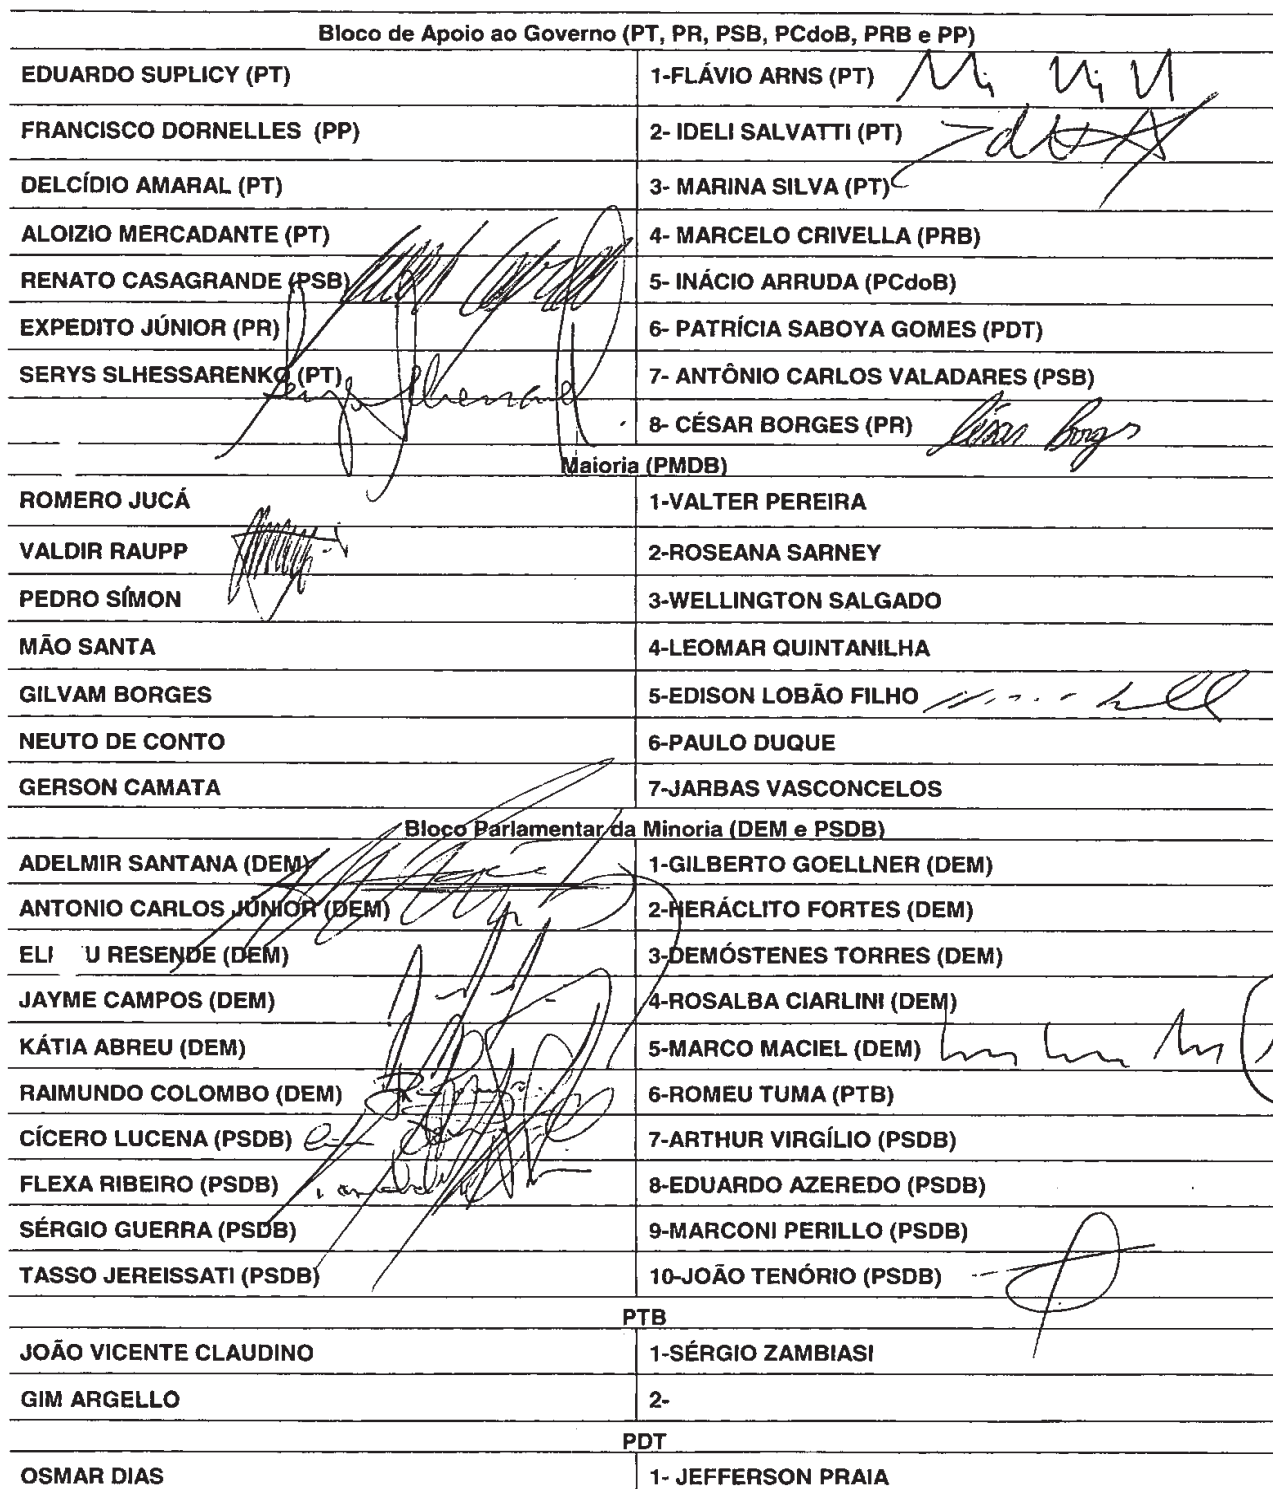 Bloco de Apoio ao Governo (PT, PR, PSB, PCdoB, PRB e PP)
EDUARDO SUPLICY (PT) 1-FLÁVIO ARNS (PT)
FRANCISCO DORNELLES (PP) 2- IDELI SALVATTI (PT)
DELCÍDIO AMARAL (PT) 3- MARINA SILVA (PT)
ALOIZIO MERCADANTE (PT) 4- MARCELO CRIVELLA (PRB)
RENATO CASAGRANDE (PSB) 5- INÁCIO ARRUDA (PCdoB)
EXPEDITO JÚNIOR (PR) 6- PATRÍCIA SABOYA GOMES (PDT)
SERYS SLHESSARENKO (PT) 7- ANTÔNIO CARLOS VALADARES (PSB)
8- CÉSAR BORGES (PR) César Borges
Maioria (PMDB)
ROMERO JUCÁ 1-VALTER PEREIRA
VALDIR RAUPP 2-ROSEANA SARNEY
PEDRO SIMON 3-WELLINGTON SALGADO
MÃO SANTA 4-LEOMAR QUINTANILHA
GILVAM BORGES 5-EDISON LOBÃO FILHO
NEUTO DE CONTO 6-PAULO DUQUE
GERSON CAMATA 7-JARBAS VASCONCELOS
Bloco Parlamentar da Minoria (DEM e PSDB)
ADELMIR SANTANA (DEM) 1-GILBERTO GOELLNER (DEM)
ANTONIO CARLOS JÚNIOR (DEM) 2-HERÁCLITO FORTES (DEM)
ELI U RESENDE (DEM) 3-DEMÓSTENES TORRES (DEM)
JAYME CAMPOS (DEM) 4-ROSALBA CIARLINI (DEM)
KÁTIA ABREU (DEM) 5-MARCO MACIEL (DEM)
RAIMUNDO COLOMBO (DEM) 6-ROMEU TUMA (PTB)
CÍCERO LUCENA (PSDB) 7-ARTHUR VIRGÍLIO (PSDB)
FLEXA RIBEIRO (PSDB) 8-EDUARDO AZEREDO (PSDB)
SÉRGIO GUERRA (PSDB) 9-MARCONI PERILLO (PSDB)
TASSO JEREISSATI (PSDB) 10-JOÃO TENÓRIO (PSDB)
PTB
JOÃO VICENTE CLAUDINO 1-SÉRGIO ZAMBIASI
GIM ARGELLO 2-
PDT
OSMAR DIAS 1- JEFFERSON PRAIA